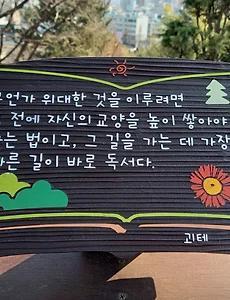 위대한 것을 이루려면
전에 자신의 교양을 높이 쌓아야
법이고, 그 길을 가는 데 가장
길이 바로 독서다.
괴테